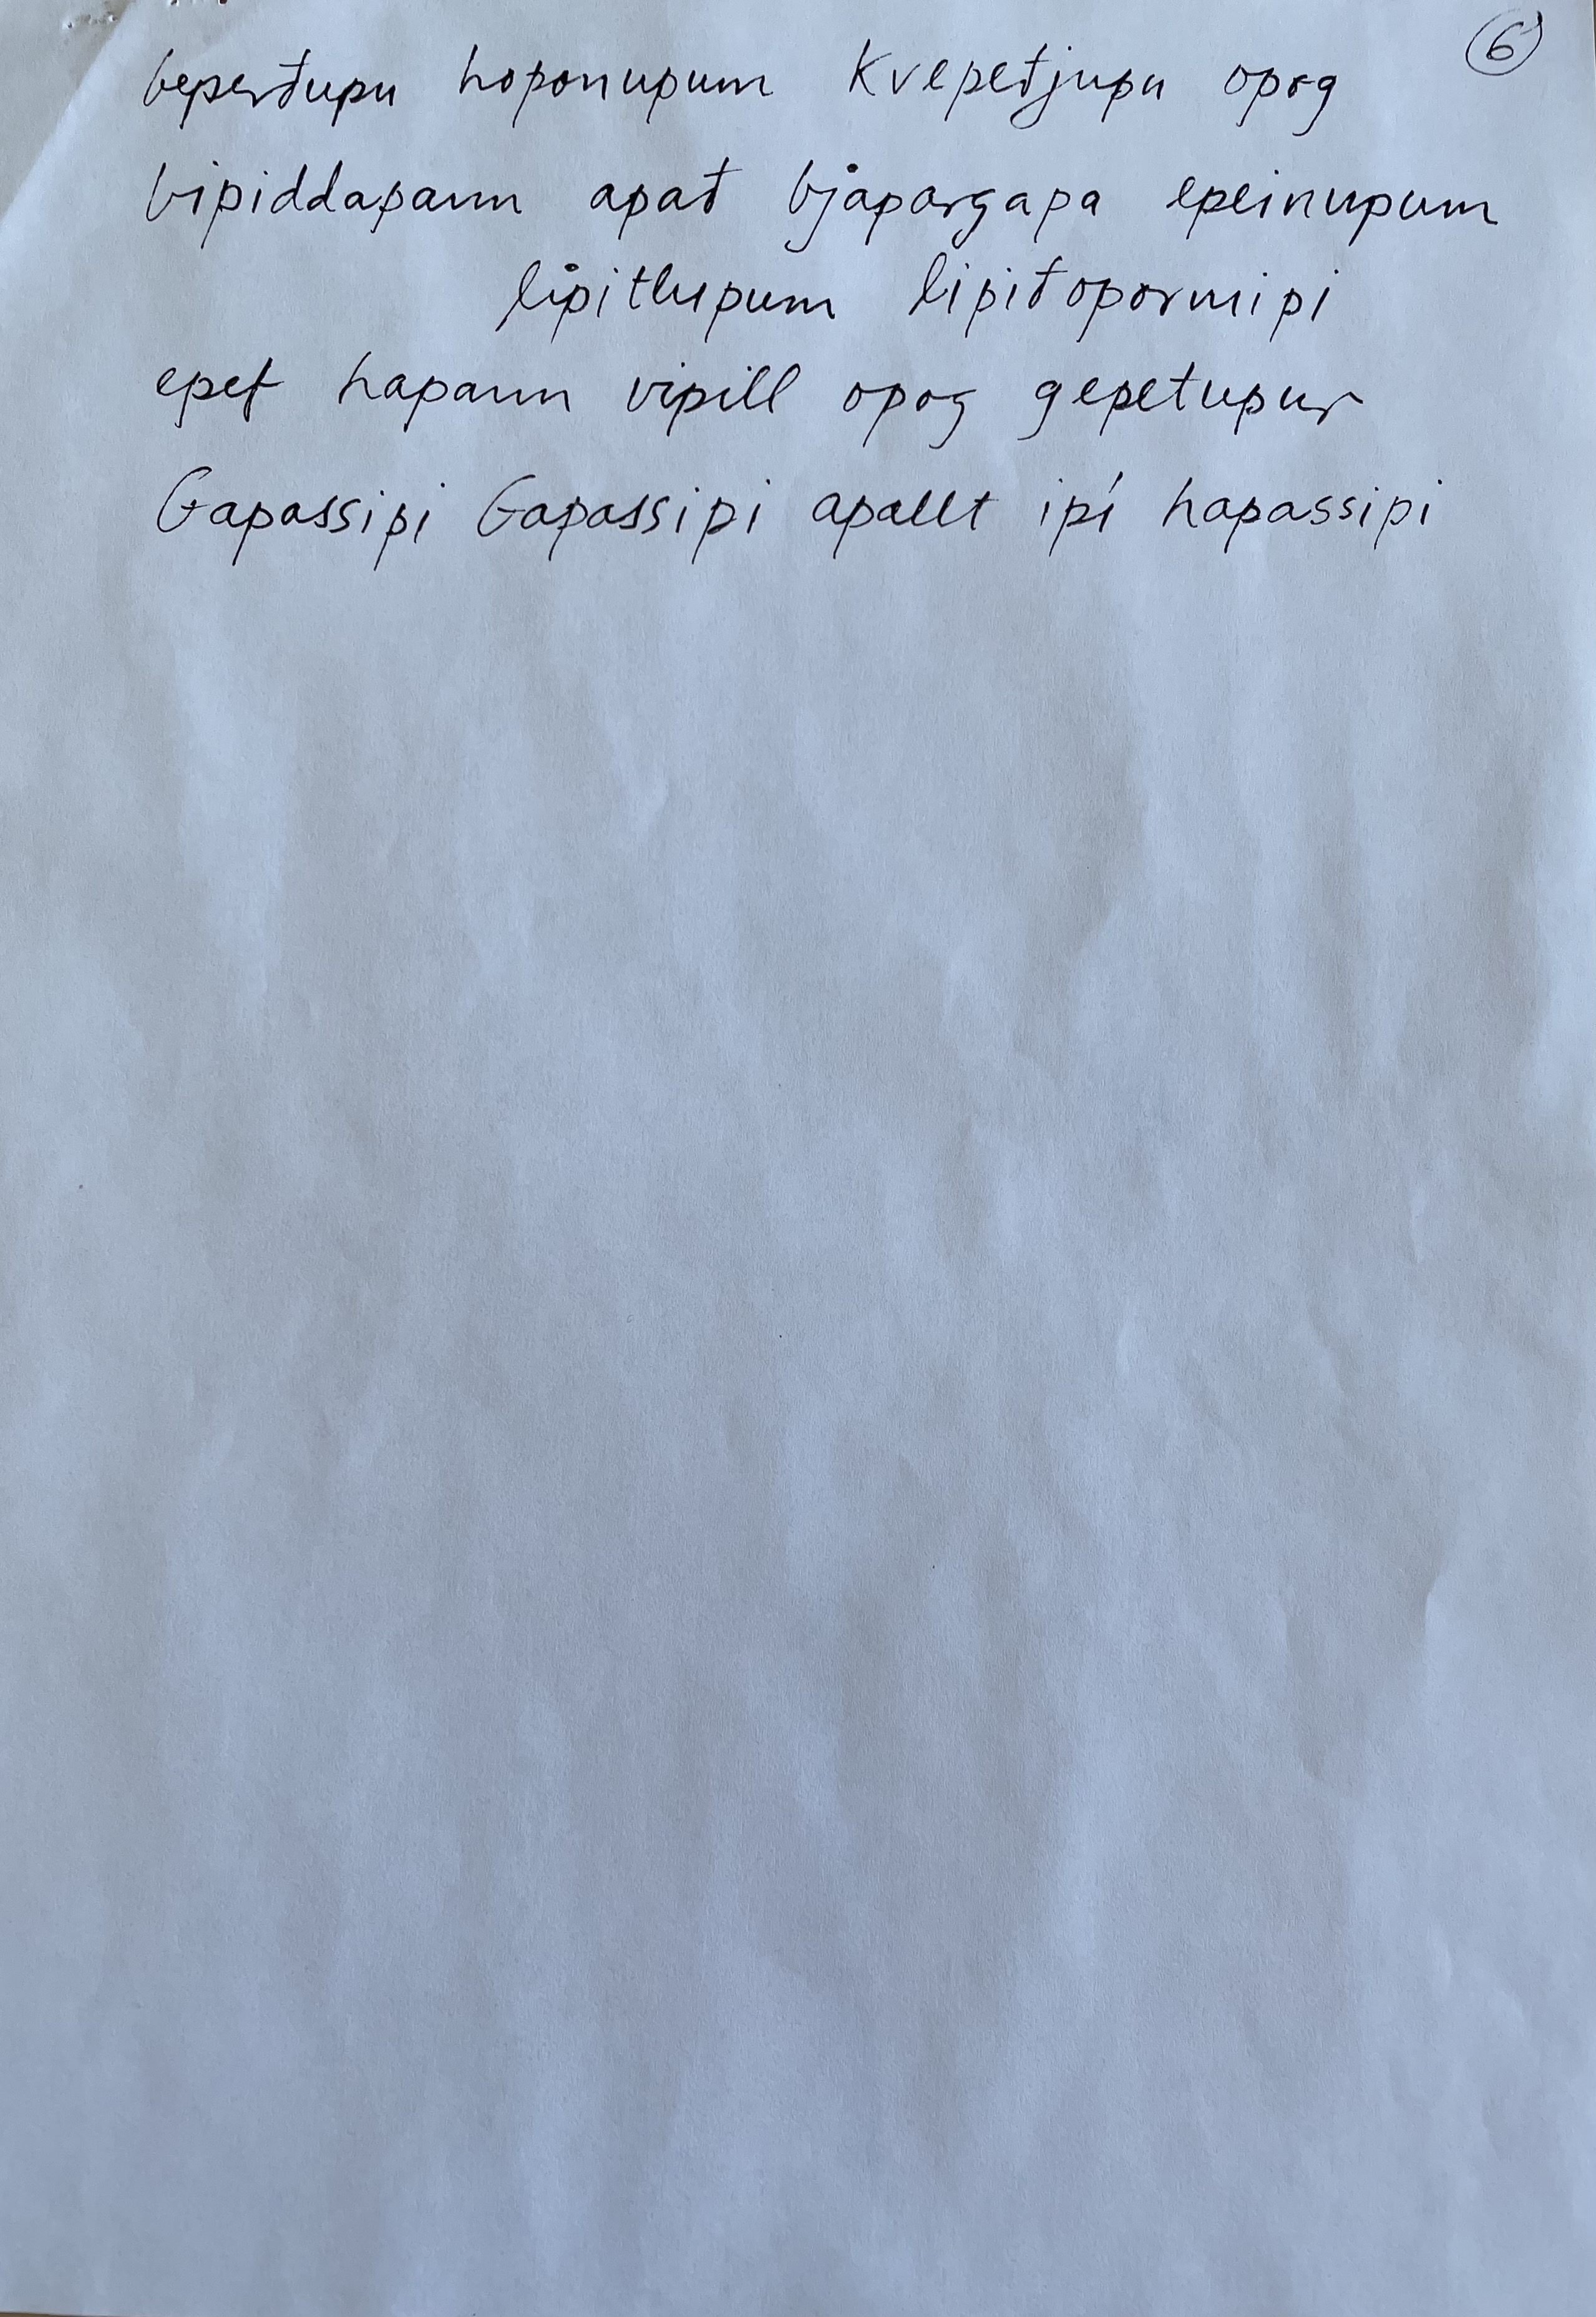 6
beperđupu hoponupum Kvepeđjupu opog
bipiddapann apađ bjåpargapa epeinupum
lipitlupum lipiđopormipi
epef hapann vipill opog gepetupur
Gapassipi Gapassipi apallt ipí hapassipi